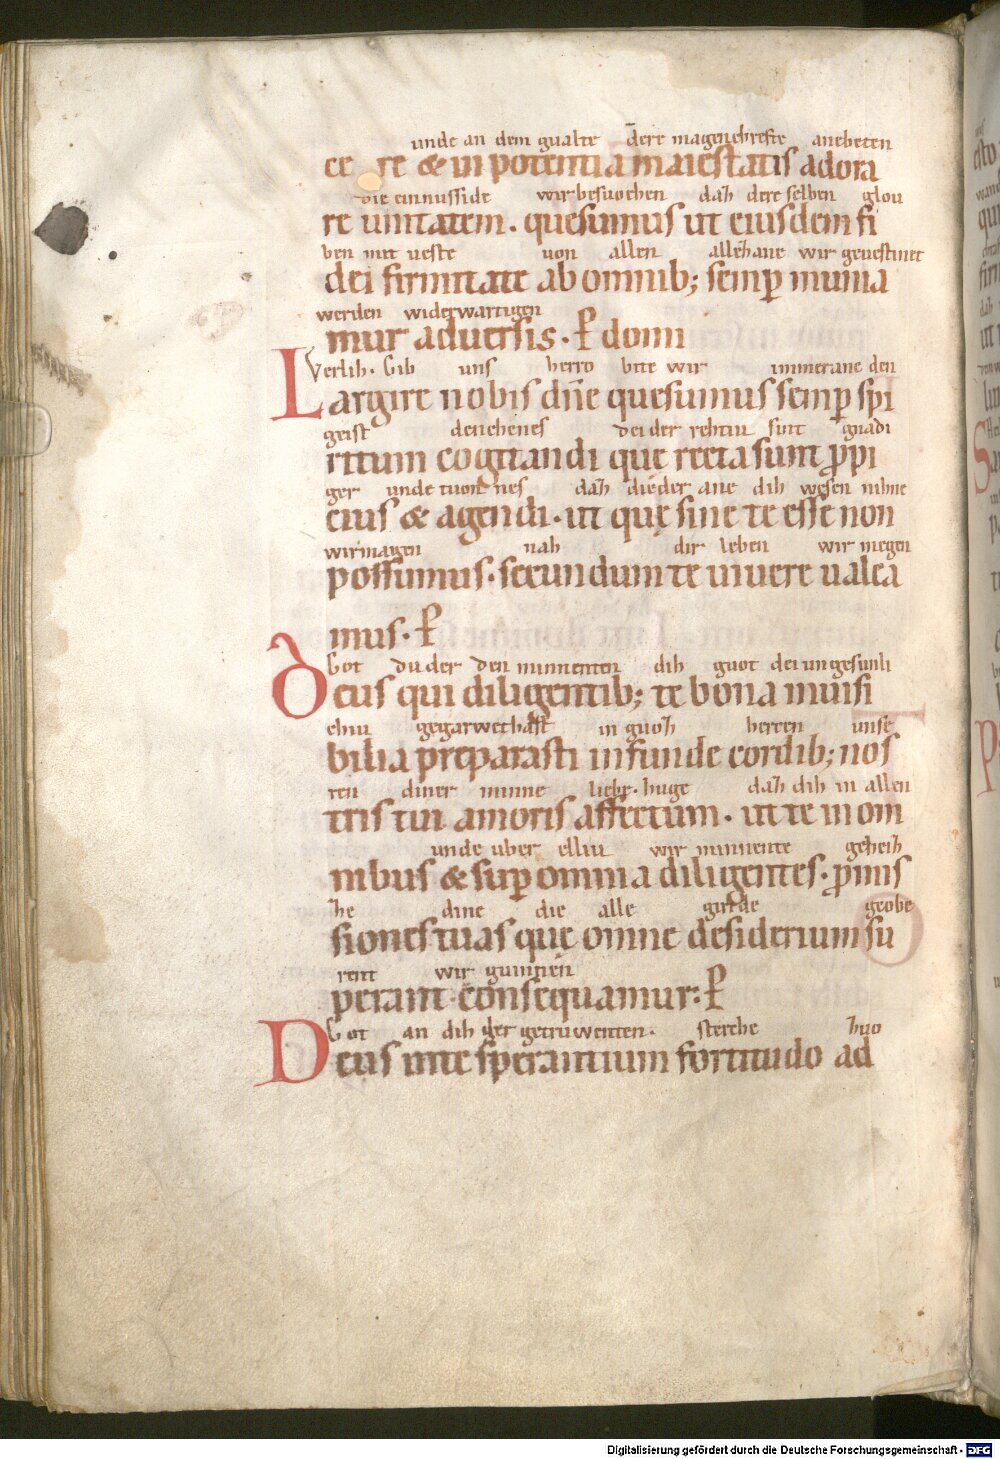 unde an dem gualte dere magenchrefte anebeten
ce re & in potentia maiestatis adora
die einnusside wir besuochen daʒ dere selben glou
re unitatem. quesumus ut eiusdem fi
ben mit ueste uon allen alleʒane wir geuestinet
dei firmitate ab omnib; semp munia
werden widerwartigen
mur aduersis. P domi
Verlih. Gib uns herro bite wir immerane den
Largire nobis dñe quesumus semp spi
geist denchenes dei der rehtiu sint gnadi
ritum cogitandi quę recta sunt ppi
ger unde tuonnes daʒ die der ane dih wesen nihne
cius & agendi. ut quę sine te esse non
wir magen nah dir leben wir megen
possumus. secundum te uiuere ualea
mus. P
Got du der den minnenten dih guot dei ungesunli
Deus qui diligentib; te bona inuisi
chiu gegarwethast in guoʒ herzen unse
bilia preparasti infunde cordib; nos
ren diner minne liebe. huge daʒ dih in allen
tris tui amoris affectum. ut te in om
unde uber elliu wir minnente geheiʒ
nibus & sup omnia diligentes. pmis
ʒe dine die alle girde geobe
siones tuas quę omne desiderium su
rent wir guinnen
perant consequamur: P
Got an dih der getruwenten. sterche ʒuo
Deus inte sperantium fortitudo ad
Digitalisierung gefördert durch die Deutsche Forschungsgemeinschaft - DFG